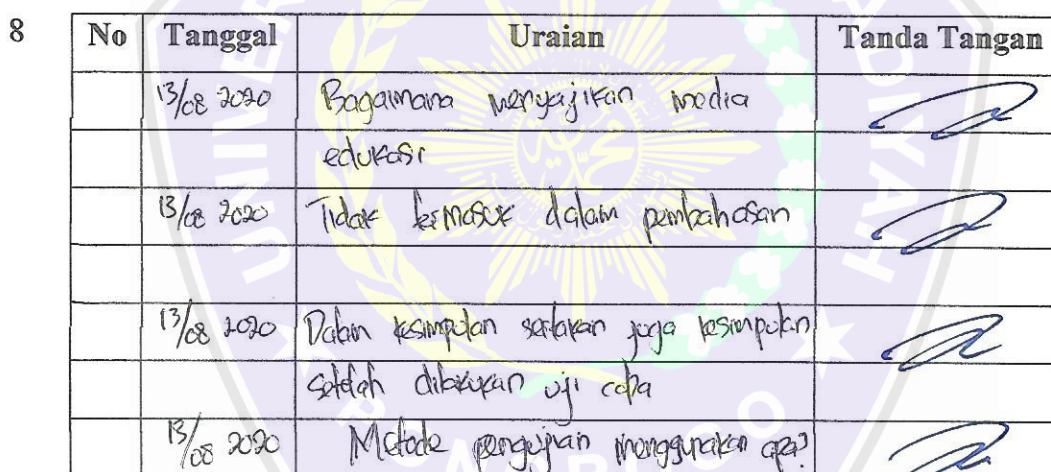 8
No Tanggal Uraian Tanda Tangan
13/08 2020 Bagaimana menyajikan media
edukasi
13/08 2020 Tidak termasuk dalam pembahasan
13/08 2020 Dalam kesimpulan sertakan juga kesimpulan
setelah dilakukan uji coba
13/08 2020 Metode pengujian menggunakan apa?